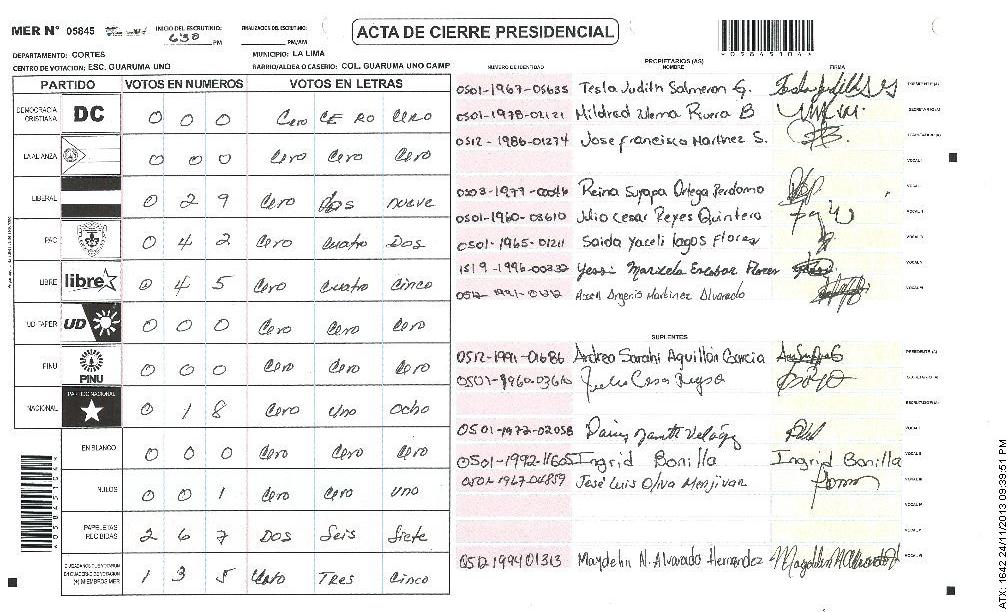 MER Nº 05845 INICIO DEL ESCRUTINIO: 630 PM FINALIZACION DEL ESCRUTINIO: PM/AM
ACTA DE CIERRE PRESIDENCIAL
DEPARTAMENTO: CORTES MUNICIPIO: LA LIMA
CENTRO DE VOTACION: ESC. GUARUMA UNO BARRIO/ALDEA O CASERIO: COL. GUARUMA UNO CAMP
PARTIDO VOTOS EN NUMEROS VOTOS EN LETRAS
DEMOCRACIA CRISTIANA DC 0 0 0 Cero CERO CERO
LA ALIANZA 0 0 0 Cero Cero Cero
LIBERAL 0 2 9 Cero Dos nueve
PAC 0 4 2 Cero Cuatro Dos
LIBRE libre 0 4 5 Cero Cuatro Cinco
UD FAPER UD 0 0 0 Cero Cero Cero
PINU PINU 0 0 0 Cero Cero Cero
NACIONAL PARTIDO NACIONAL 0 1 8 Cero Uno Ocho
EN BLANCO 0 0 0 Cero Cero Cero
NULOS 0 0 1 Cero Cero uno
PAPELETAS RECIBIDAS 2 6 7 Dos Seis Siete
(+) MIEMBROS MER 1 3 5 Uno TRES Cinco
PROPIETARIOS (AS)
NUMERO DE IDENTIDAD NOMBRE FIRMA
0501-1967-05635 Tesla Judith Salmeron G. PRESIDENTE (A)
0501-1978-02121 Mildred Idema Rivera B SECRETARIO (A)
0512-1986-01274 Jose francisco Martinez S. ESCRUTADOR (A)
VOCAL I
Reina Suyapa Ortega Perdomo
0501-1960-03610 Julio Cesar Reyes Quintero
0501-1965-01211 Saida Yaceli lagos Flores
1519-1996-00332 Yessi Maricela Escobar Flores
Axcell Argenis Martinez Alvarado
SUPLENTES
0512-1991-01686 Andrea Sarahi Aguillón Garcia PRESIDENTE (A)
0501-1960-03610 SECRETARIO (A)
ESCRUTADOR (A)
0501-1972-02058 VOCAL I
0501-1992-11605 Ingrid Bonilla Ingrid Bonilla
0501-1967-04859 José Luis Oliva Menjivar
0512 1994 01313 Maydelin N. Alvarado Hernandez
05845104
ATX: 1642 24/11/2013 09:39:51 PM